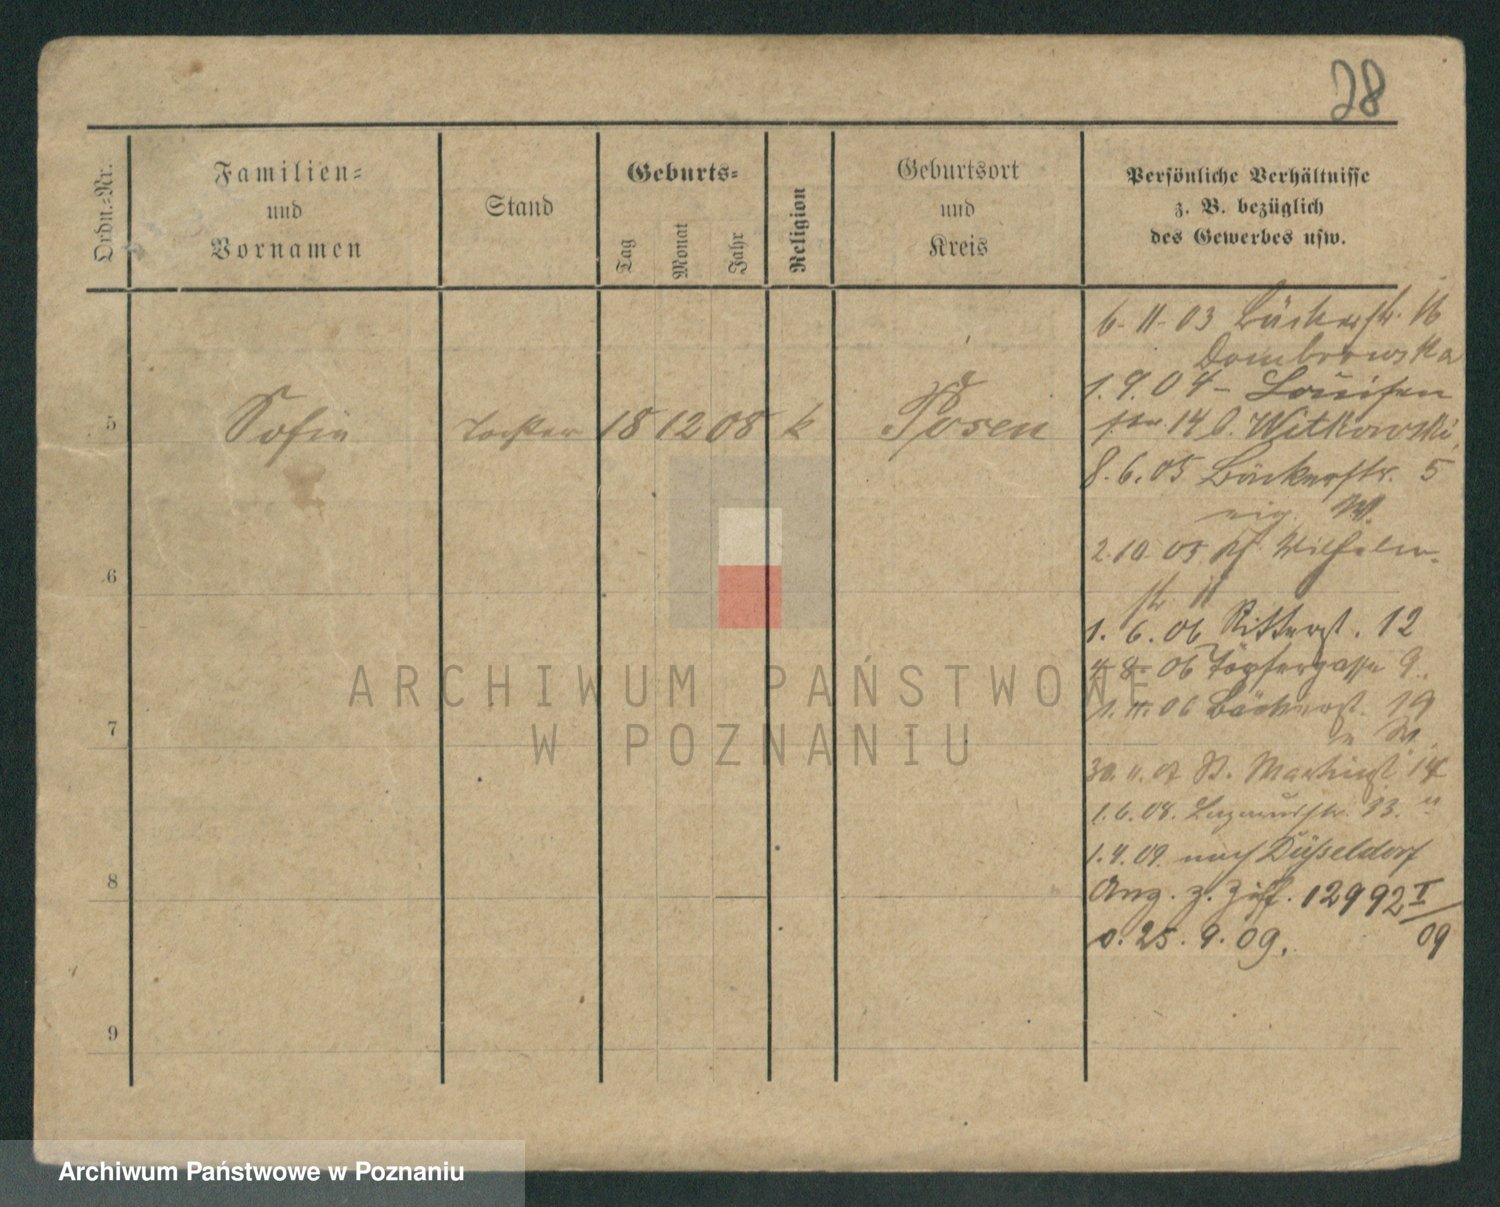 28
Ordn.-Nr.
Familien-
und
Vornamen
Stand
Geburts-
Tag
Monat
Jahr
Religion
Geburtsort
und
Kreis
Persönliche Verhältnisse
z. B. bezüglich
des Gewerbes usw.
5 Sofie Tochter 18 12 08 k Posen
6
7
8
9
6-11-03 Bäckerstr. 16
Dombrowska
1.9.04 - Louisen
str 14 b. Witkowski
8.6.05 Bäckerstr. 5
2.10.05 Wilhelm-
str 11
1.6.06 Ritterst. 12
4-8-06 Töpfergasse 9.
1.11.06 Bäckerst. 19
30.11.07 St. Martinst 14
1.6.08. 33.
1.4.09. nach Düsseldorf
Ang. z. Ziff. 12992 I/09
v. 25.9.09.
ARCHIWUM PAŃSTWOWE
W POZNANIU
Archiwum Państwowe w Poznaniu